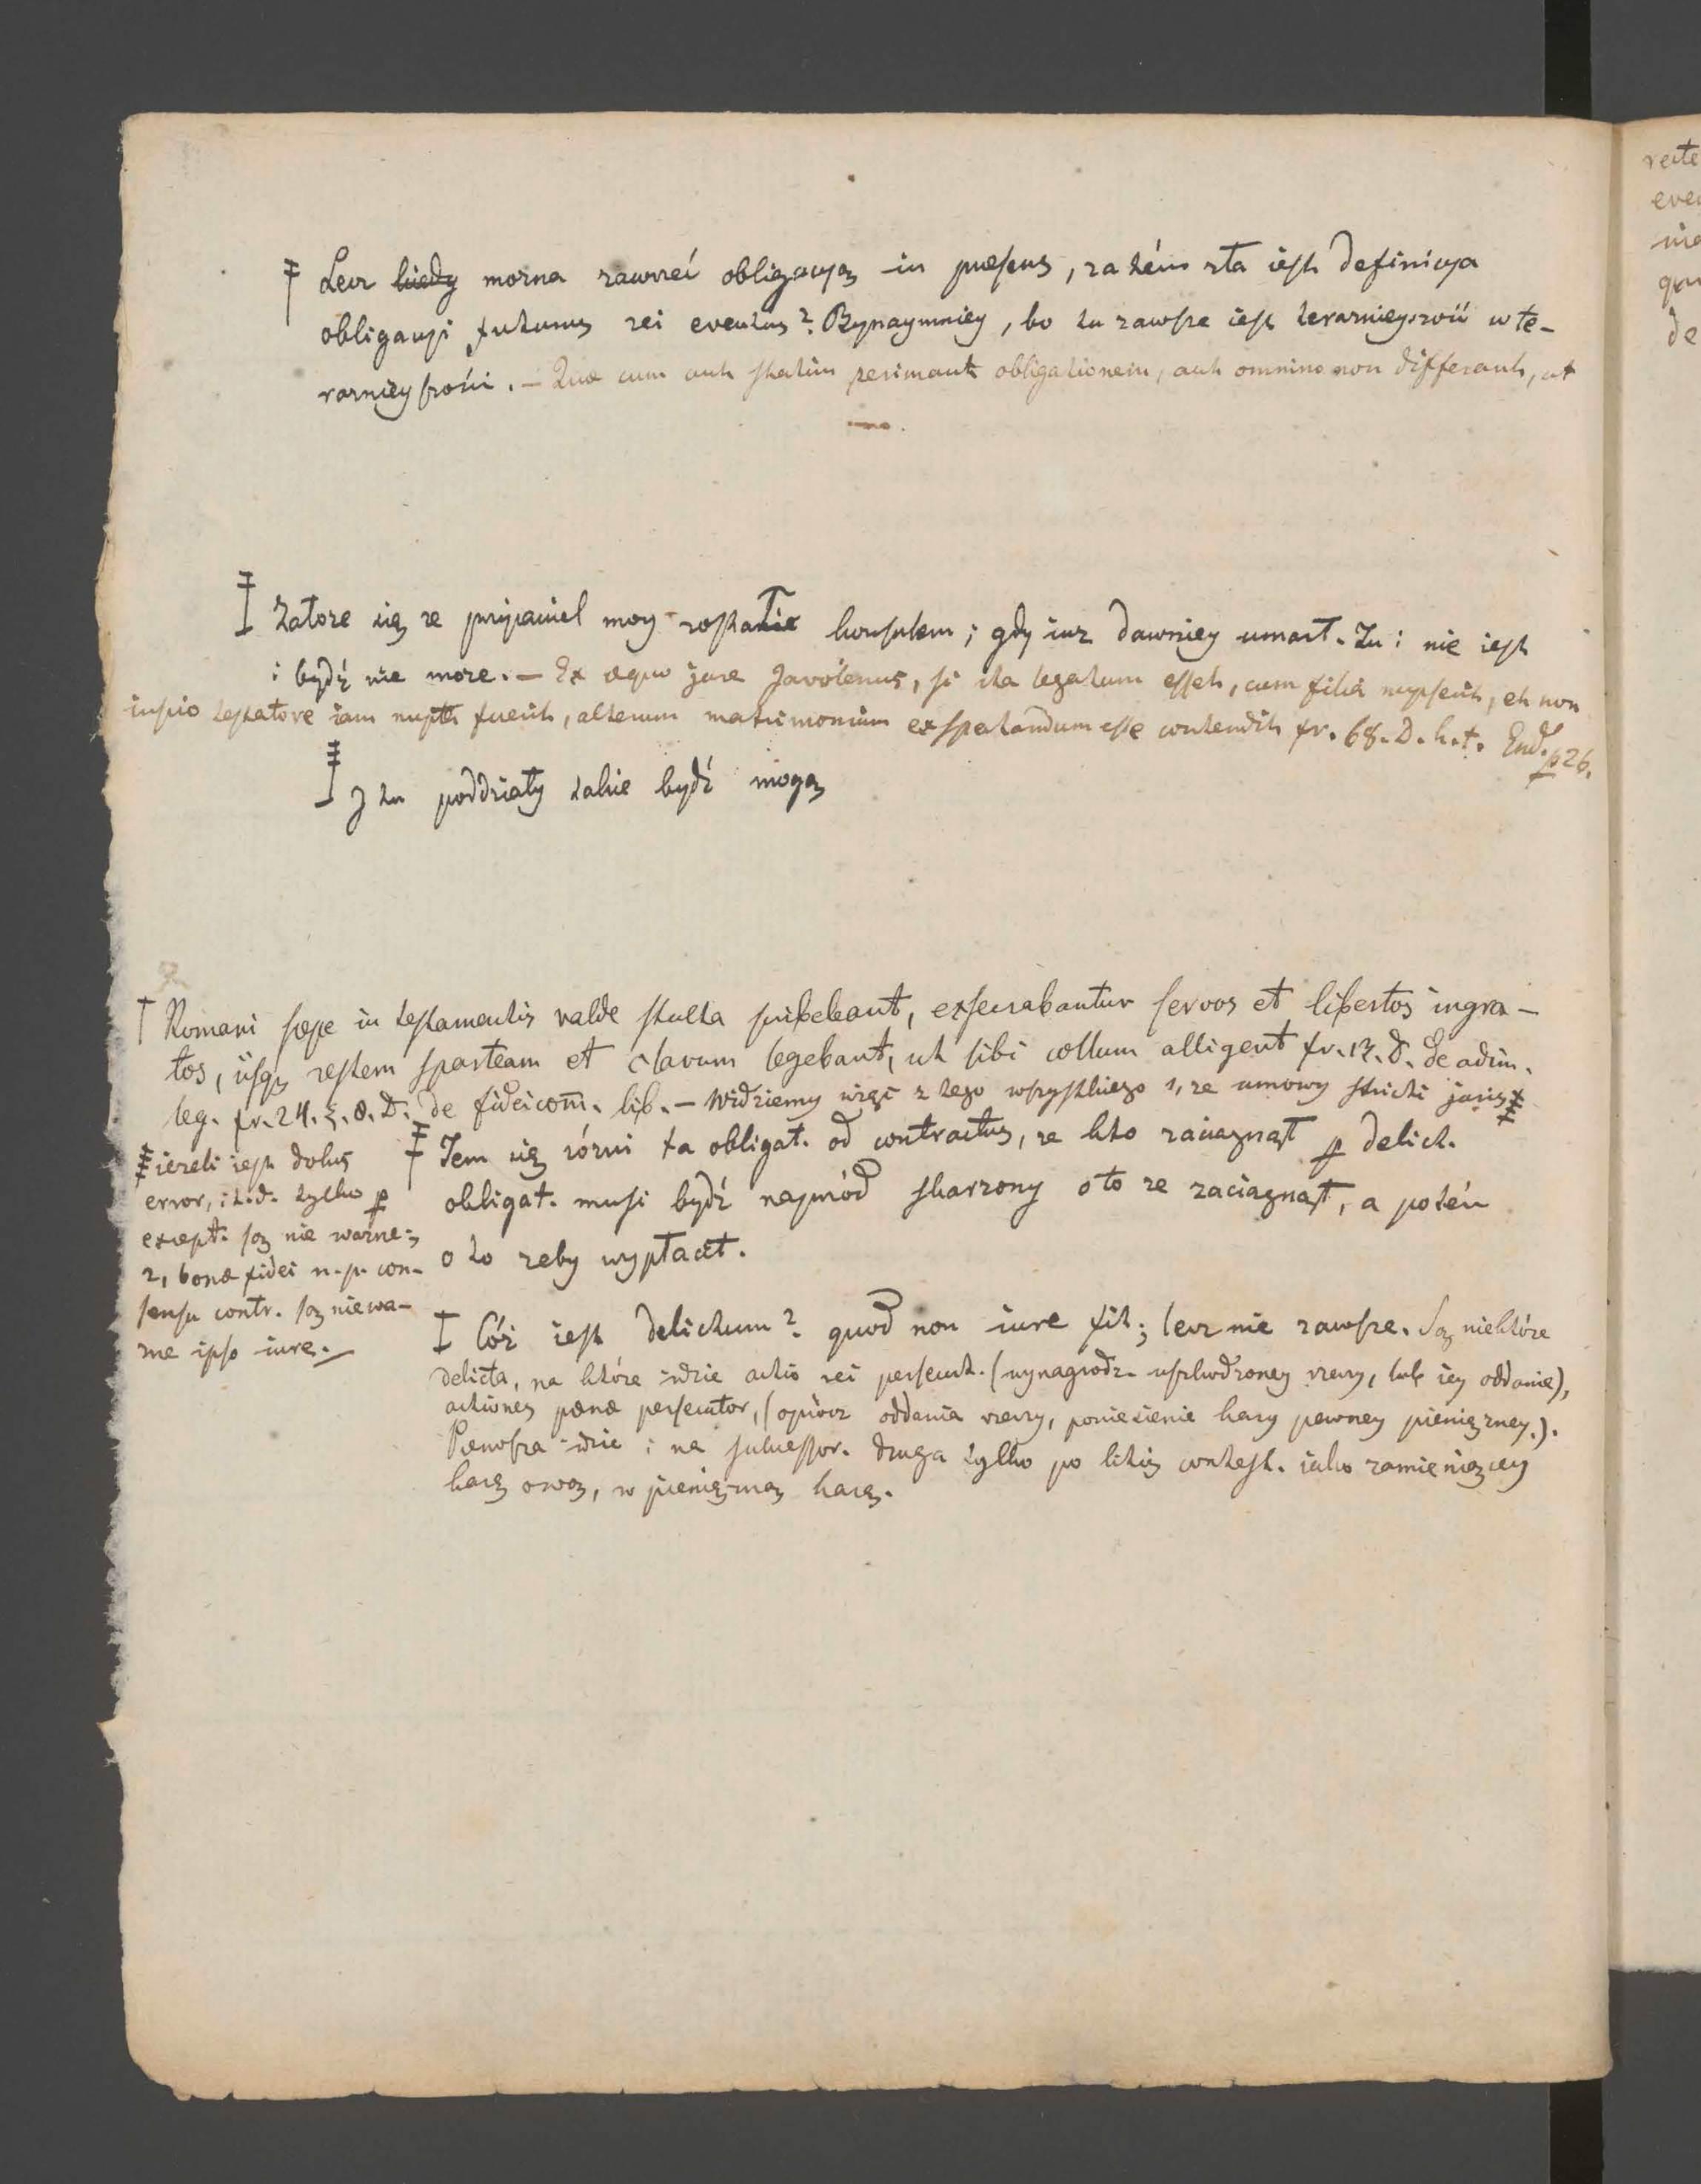 ‡ Lecz kiedy mozna zawrzeć obligacyą in praesens, zatém zła iest definicya
obligacyi futurus rei eventus? Bynaymniey, bo tu zawsze iest teraznieyszość w te-
raznieyszości. — Quæ cum aut statim perimant obligationem, aut omnino non differant, ut
imo.
‡ Załoze się ze przyjaciel moy zostałie konsulem; gdy iuz dawniey umarł. Tu i nie iest
i bydź nie moze. — Ex æquo jure Javolenus, si ita legatum esset, cum filia nupserit, et non
inscio testatore iam nupta fuerit, alterum matrimonium exspectandum esse contendit fr. 68. D. h. t. End. p 26.
‡ J tu poddziały takie bydź mogą
† Romani sæpe in testamentis valde stulta scribebant, exsecrabantur servos et libertos ingra-
tos, iisq restem sparteam et clavum legebant, ut sibi collum alligent fr. 13. D. de adim.
leg. fr. 24. §. 8. D. de fideicom. lib. — Widziemy więc z tego wszystkiego 1, ze umowy stricti juris ‡
‡ iezeli iest dolus
error, i t. d. tylko p
except. są nie wazne;
2, bonæ fidei n. p. con-
sensu contr. są niewa-
zne ipso iure. —
‡ Tem się rózni ta obligat. od contractus, ze kto zaciągnął p delict.
obligat. musi bydź najprzód skarzony o to ze zaciagnął, a potém
o to zeby wypłacił.
‡ Cóż iest delictum? quod non iure fit; lecz nie zawsze. Są niektóre
delicta, na które idzie actio rei persecut. (wynagrodz. uszkodzoney rzeczy, lub iey oddanie),
actiones pœnæ persecutor, (oprócz oddania rzeczy, poniesienie kary pewney pieniężney.).
Pierwsza idzie i na successor. druga tylko po litis contest. iako zamieniącey
karę ową, w pieniężną karę.